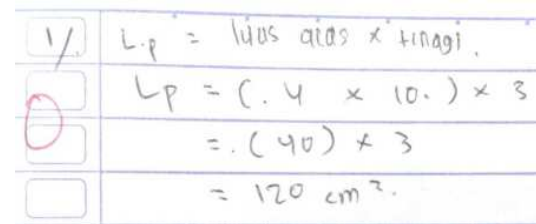 1/. L.p = luas alas x tinggi.
Lp = (. 4 x 10. ) x 3
0
=. (40) x 3
= 120 cm².